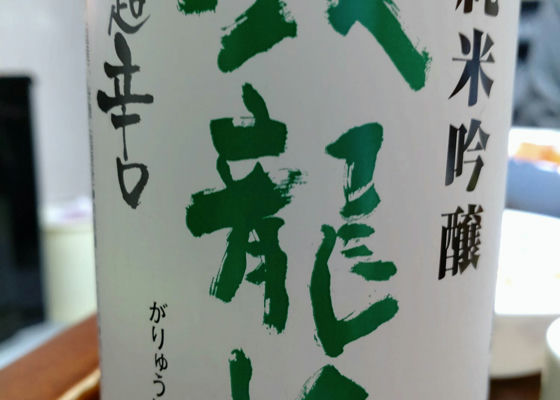 純米吟醸
龍
超辛口
がりゅう